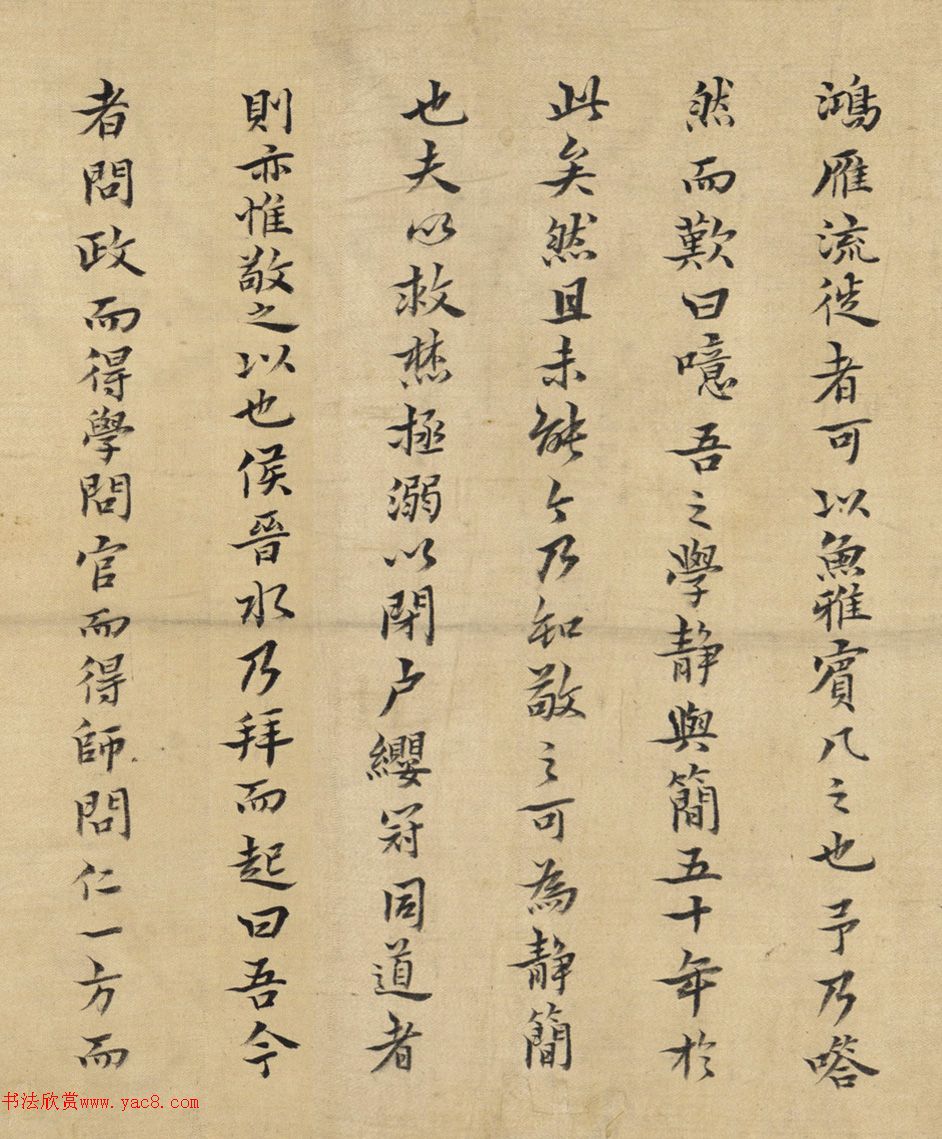 鴻雁流徙者可以魚雅賓凡之也予乃嗒
然而歎曰噫吾之學静與簡五十年於
此矣然且未能今乃知敬之可為静簡
也夫以救焚拯溺以閉户纓冠同道者
則亦惟敬之以也侯晉水乃拜而起曰吾今
者問政而得學問官而得師問仁一方而
书法欣赏www.yac8.com